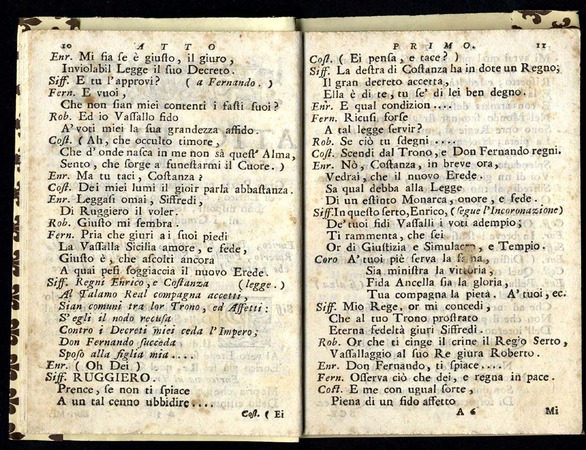 10 ATTO
Enr. Mi fia ſe è giuſto, il giuro,
Inviolabil Legge il ſuo Decreto.
Siff. E tu l'approvi? ( a Fernando. )
Fern. E vuoi,
Che non ſian miei contenti i faſti ſuoi?
Rob. Ed io Vaſſallo fido
A' voti miei la ſua grandezza affido.
Coſt. ( Ah, che occulto timore,
Che d'onde naſca in me non sà queſt' Alma,
Sento, che ſorge a funeſtarmi il Cuore. )
Enr. Ma tu taci, Coſtanza?
Coſt. Dei miei lumi il gioir parla abbaſtanza.
Enr. Leggaſi omai, Siffredi,
Di Ruggiero il voler.
Rob. Giuſto mi ſembra.
Fern. Pria che giuri a i ſuoi piedi
La Vaſſalla Sicilia amore, e fede,
Giuſto è, che aſcolti ancora
A quai peſi ſoggiaccia il nuovo Erede.
Siff. Regni Enrico, e Coſtanza ( legge. )
Al Talamo Real compagna accetti,
Sian comuni tra lor Trono, ed Affetti:
S'egli il nodo recuſa
Contro i Decreti miei ceda l'Impero;
Don Fernando ſucceda
Spoſo alla figlia mia....
Enr. ( Oh Dei )
Siff. RUGGIERO.
Prence, ſe non ti ſpiace
A un tal cenno ubbidire....
Coſt. ( Ei
PRIMO. 11
Coſt. ( Ei penſa, e tace? )
Siff. La deſtra di Coſtanza ha in dote un Regno;
Il gran decreto accetta,
Ella è di te, tu ſe' di lei ben degno.
Enr. E qual condizion....
Fern. Ricuſi forſe
A tal legge ſervir?
Rob. Se ciò tu ſdegni....
Coſt. Scendi dal Trono, e Don Fernando regni.
Enr. Nò, Coſtanza, in breve ora,
Vedrai, che il nuovo Erede
Sa qual debba alla Legge
Di un eſtinto Monarca, onore, e fede.
Siff. In queſto ſerto, Enrico, (ſegue l'Incoronazione)
De' tuoi fidi Vaſſalli i voti adempio;
Ti rammenta, che ſei
Or di Giuſtizia e Simulacro, e Tempio.
Coro A' tuoi piè ſerva la
Sia miniſtra la vittoria,
Fida Ancella ſia la gloria,
Tua compagna la pietà. A' tuoi, ec.
Siff. Mio Rege, or mi concedi,
Che al tuo Trono proſtrato
Eterna fedeltà giuri Siffredi.
Rob. Or che ti cinge il crine il Regio Serto,
Vaſſallaggio al ſuo Re giura Roberto.
Enr. Don Fernando, ti ſpiace....
Fern. Oſſerva ciò che dei, e regna in pace.
Coſt. E me con ugual ſorte,
Piena di un fido affetto
A 6 Mi